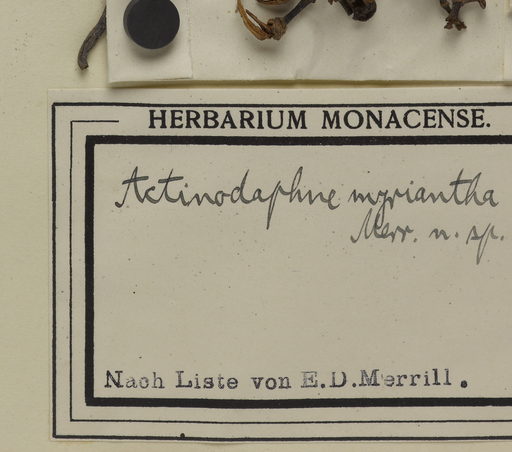 HERBARIUM MONACENSE.
Actinodaphne myriantha
Merr. n. sp.
Nach Liste von E.D.Merrill.